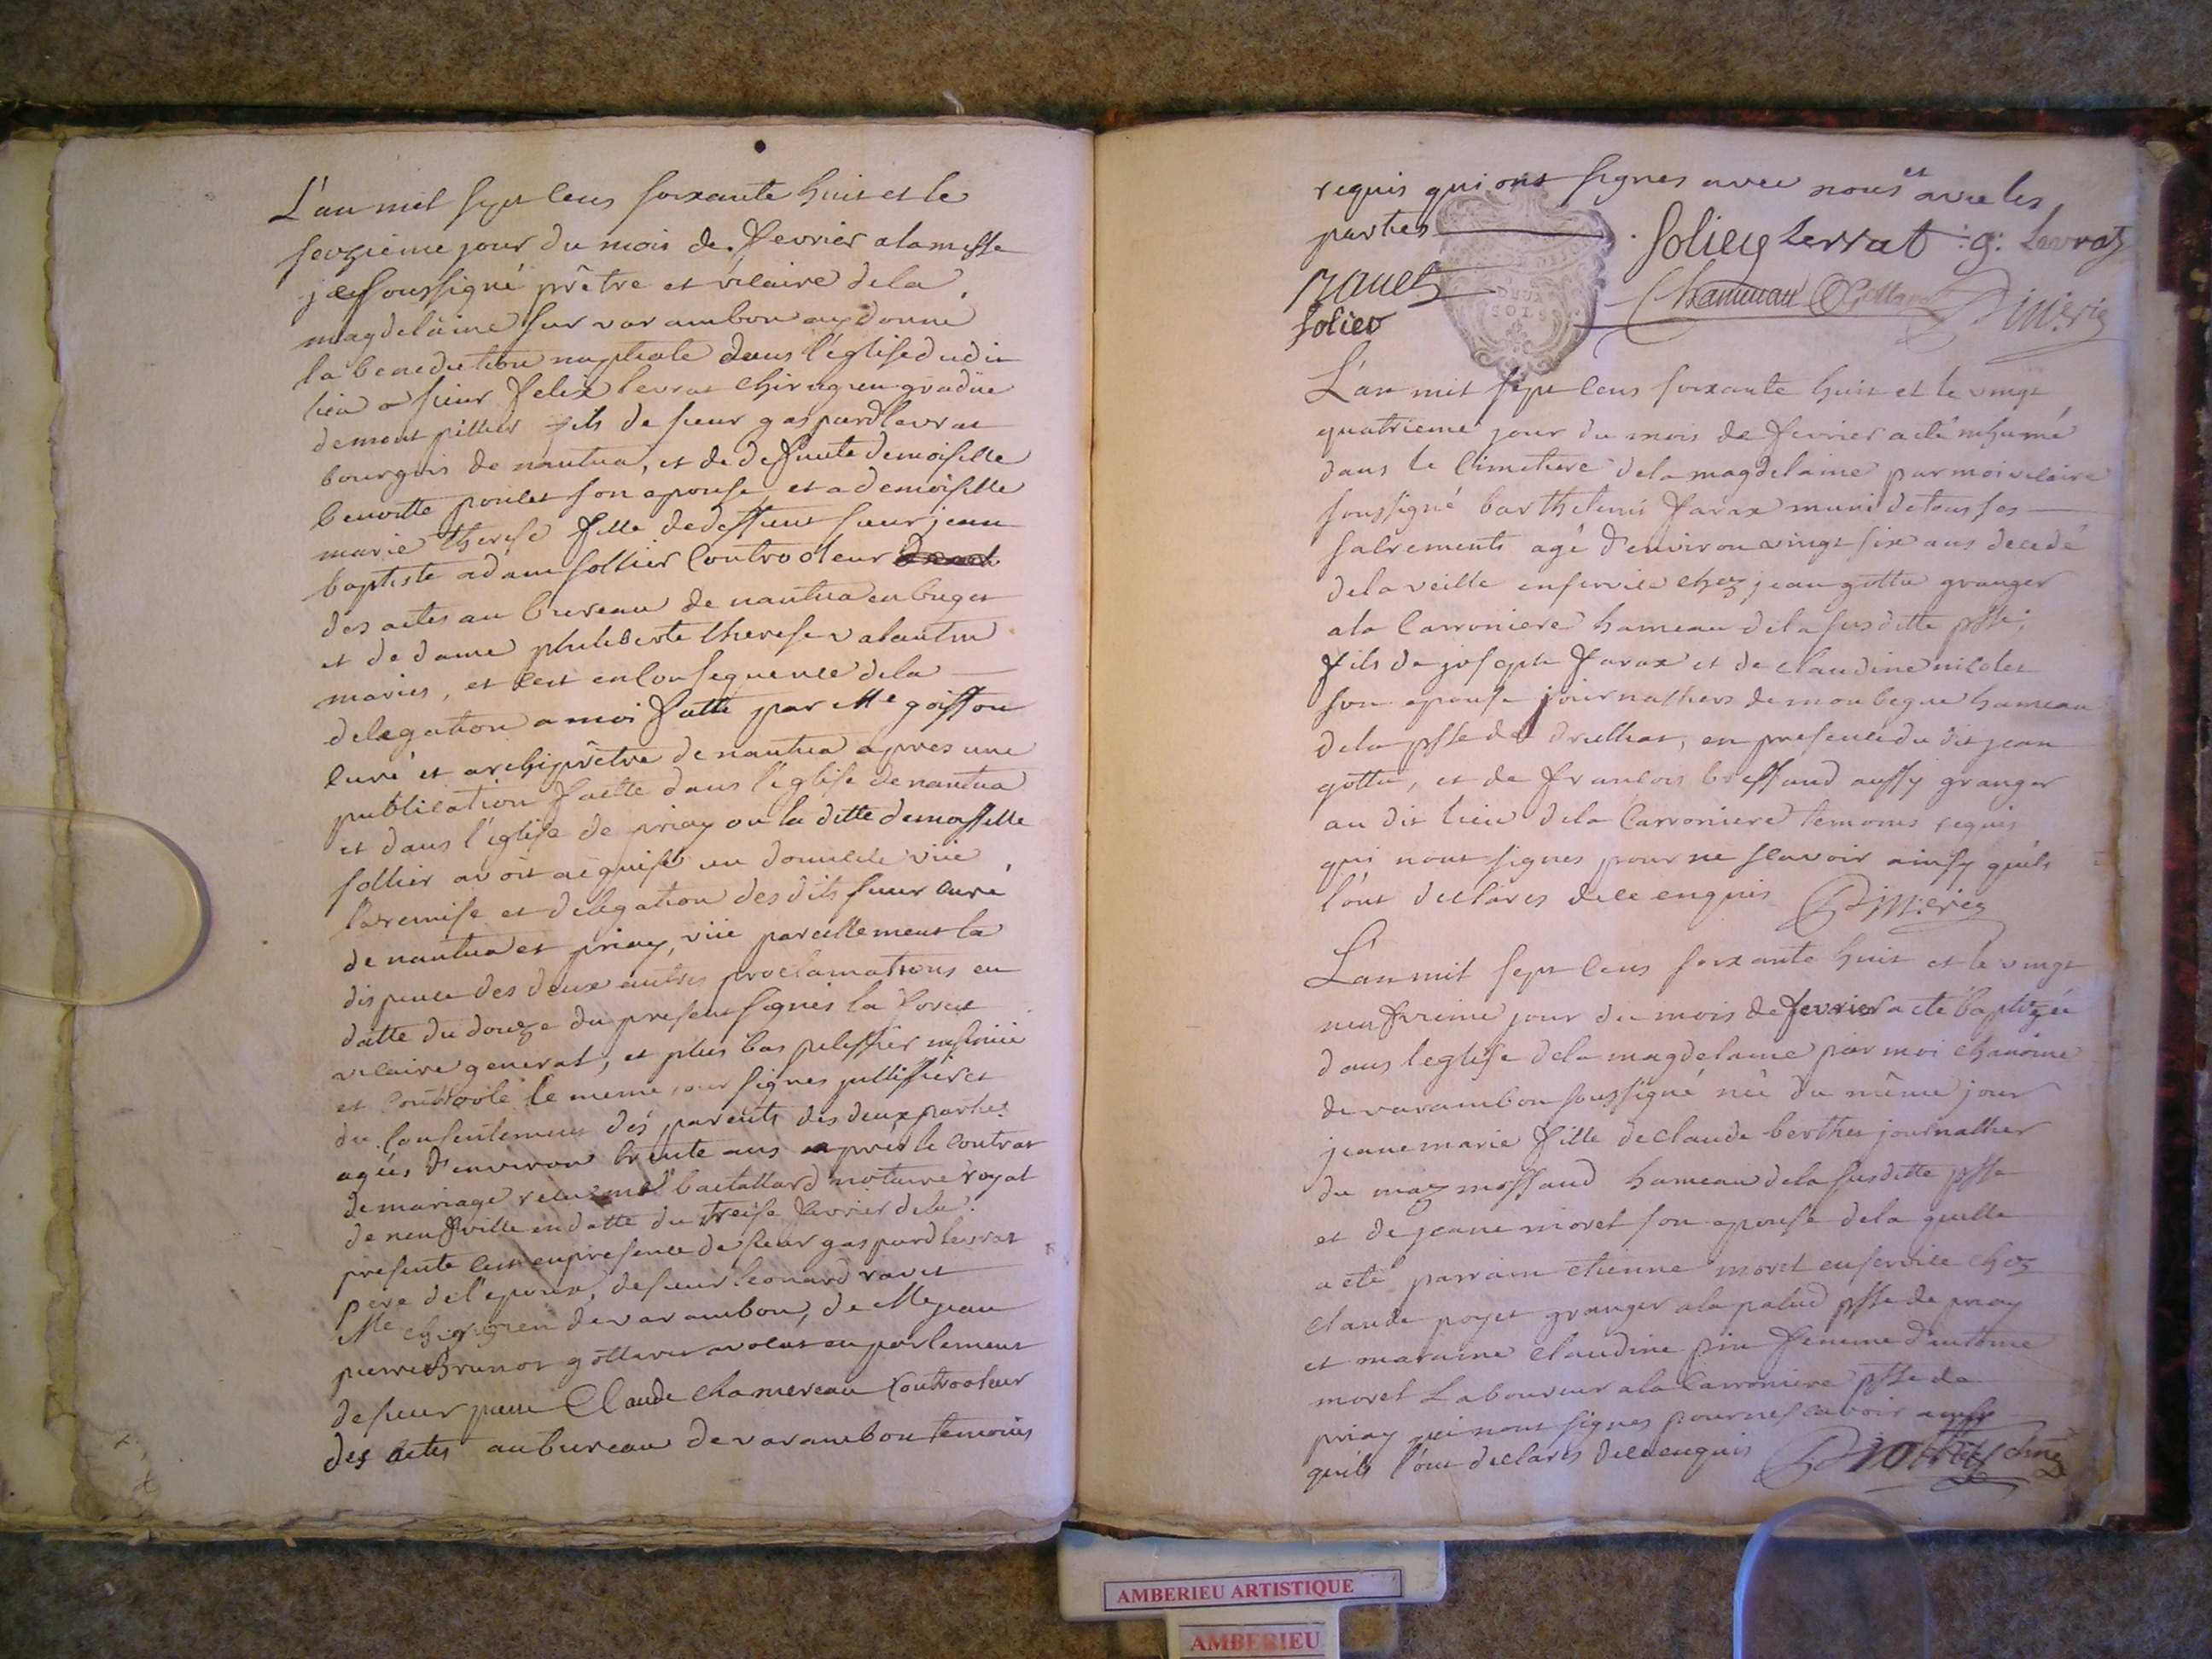 L'an mil sept cens soixante huit et le
seizieme jour du mois de fevrier a la messe
je soussigné prêtre et vicaire de la
magdelaine sur varambon ay donné
la benediction nuptiale dans l'église dudit
lieu a sieur felix levrat chirugien gradüé
demeut fils de sieur gaspard levrat
bourgois de nantua, et de deffunte demoiselle
benoitte poncet son epouse, et a demoiselle
marie therese fille de deffunt sieur jean
baptiste adam sollier controoleur
des actes au bureau de nantua en buget
et de dame philiberte therese valantin
maries, et c'est en consequence de la
delegation a moi faitte par Mre goiffon
curé et archiprêtre de nantua apres une
publication faitte dans l'église de nantua
et dans l'église de priay ou la ditte demoiselle
sollier avoit acquise un domicile vüe
la remise et delegation des dits sieur curé
de nantua et priay, vüe pareillement la
dispence des deux autres proclamations en
datte du douze du present signés la forest
vicaire general, et plus bas pelissier insinüé
et controolé le meme jour signes jullissier et
du consentement des parents des deux parties
agées d'environ trente ans apres le contrat
de mariage recu me battallard notaire royal
de neufville en datte du treise fevrier de la
presente c'est en presence de sieur gaspard levrat
pere de l'epoux, de sieur leonard ravet
Me chirurgien de varambon, de Me jean
pierre Brunot gottaret avocat en parlement
de sieur pierre Claude chamereau controoleur
des actes au bureau de varambon temoins
requis qui ont signes avec nous et avec les
parties
solier Levrat g: Levrat
ravet Chamereau
solier
DEUX
SOLS
L'an mil sept cens soixante huit et le vingt
quatrieme jour du mois de fevrier a eté inhumé
dans le cimetiere de la magdelaine par moi vicaire
soussigné barthelemi farax muni de tous ses
sacrements agé d'environ vingt six ans decedé
de la veille en service chez jean gottu granger
a la Carroniere hameau de la susditte psse,
fils de joseph farax et de claudine nicolet
son epouse journalliers de monbegue hameau
de la psse de druillat, en presence du dit jean
gottu, et de francois bressand aussy granger
au dit lieu de la Carroniere temoins requis
qui n'ont signes pour ne scavoir ainsy qu'ils
l'ont declarés de ce enquis
L'an mil sept cens soixante huit et le vingt
neufvieme jour du mois de fevrier a eté baptizée
dans l'eglise de la magdelaine par moi chanoine
de varambon soussigné née du même jour
jeane marie fille de claude berthet journallier
du maz moissaud hameau de la susditte psse
et de jeane moret son epouse de la quelle
a eté parrain etienne moret en service chez
claude poyet granger a la palud psse de priay
et maraine claudine pin femme d'antoine
moret Laboureur a la Carroniere psse de
priay qui n'ont signes pour ne scavoir ainsy
qu'ils l'ont declarés de ce enquis
AMBERIEU ARTISTIQUE
AMBERIEU